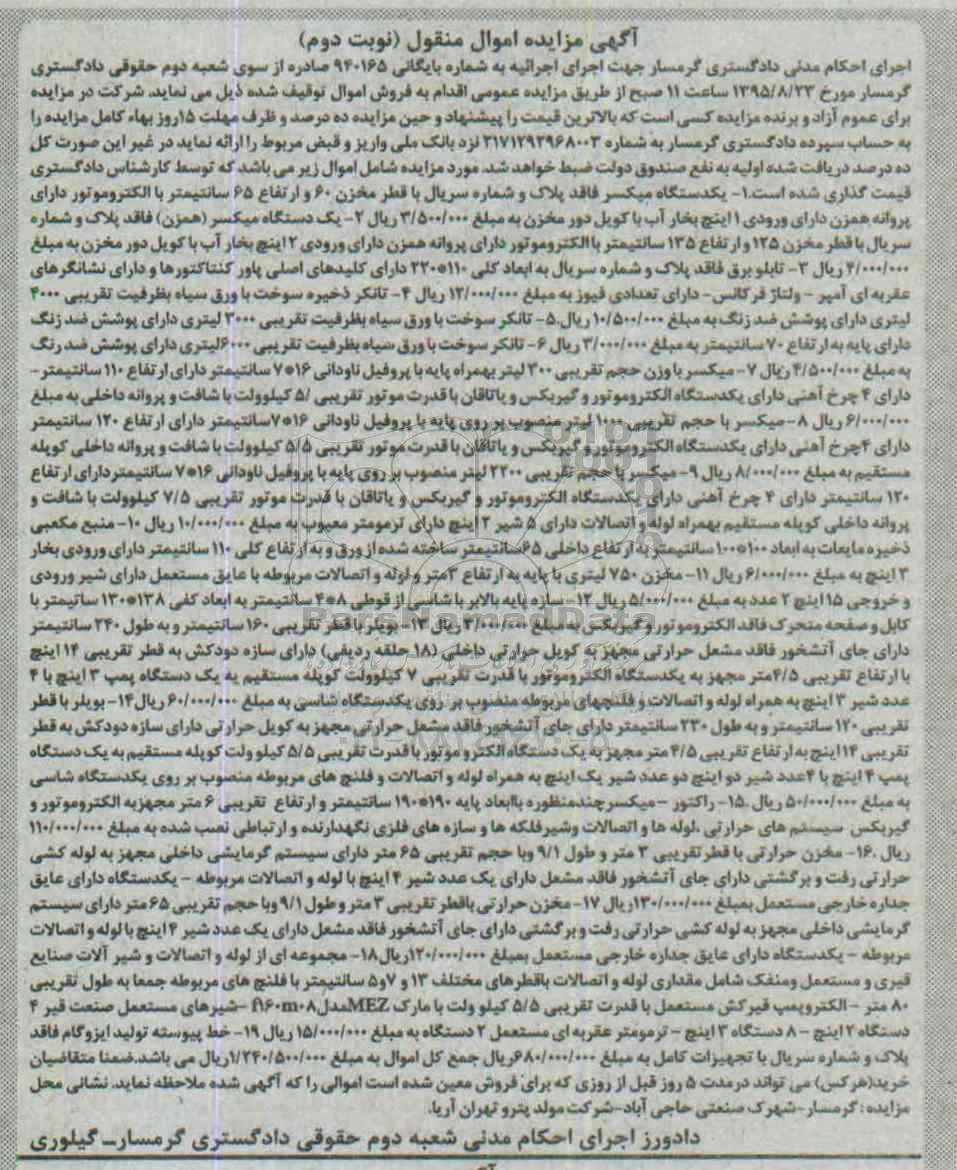 آگهی مزایده اموال منقول (نوبت دوم)
اجرای احکام مدنی دادگستری گرمسار جهت اجرای اجرائیه به شماره بایگانی ۹۴۰۱۶۵ صادره از سوی شعبه دوم حقوقی دادگستری
گرمسار مورخ ۱۳۹۵/۸/۲۳ ساعت ۱۱ صبح از طریق مزایده عمومی اقدام به فروش اموال توقیف شده ذیل می نماید. شرکت در مزایده
برای عموم آزاد و برنده مزایده کسی است که بالاترین قیمت را پیشنهاد و حین مزایده ده درصد و ظرف مهلت ۱۵روز بهاء کامل مزایده را
به حساب سپرده دادگستری گرمسار به شماره ۲۱۷۱۲۹۲۹۶۸۰۰۳ نزد بانک ملی واریز و قبض مربوط را ارائه نماید در غیر این صورت کل
ده درصد دریافت شده اولیه به نفع صندوق دولت ضبط خواهد شد. مورد مزایده شامل اموال زیر می باشد که توسط کارشناس دادگستری
قیمت گذاری شده است.۱- یکدستگاه میکسر فاقد پلاک و شماره سریال با قطر مخزن ۶۰ و ارتفاع ۶۵ سانتیمتر با الکتروموتور دارای
پروانه همزن دارای ورودی ۱ اینچ بخار آب با کویل دور مخزن به مبلغ ۳/۵۰۰/۰۰۰ ریال ۲- یک دستگاه میکسر (همزن) فاقد پلاک و شماره
سریال با قطر مخزن ۱۲۵ و ارتفاع ۱۳۵ سانتیمتر با الکتروموتور دارای پروانه همزن دارای ورودی ۲ اینچ بخار آب با کویل دور مخزن به مبلغ
۴/۰۰۰/۰۰۰ ریال ۳- تابلو برق فاقد پلاک و شماره سریال به ابعاد کلی ۱۱۰*۲۲۰ دارای کلیدهای اصلی پاور کنتاکتورها و دارای نشانگرهای
عقربه ای آمپر - ولتاژ فرکانس- دارای تعدادی فیوز به مبلغ ۱۲/۰۰۰/۰۰۰ ریال ۴- تانکر ذخیره سوخت با ورق سیاه بظرفیت تقریبی ۴۰۰۰
لیتری دارای پوشش ضد زنگ به مبلغ ۱۰/۵۰۰/۰۰۰ ریال.۵- تانکر سوخت با ورق سیاه بظرفیت تقریبی ۳۰۰۰ لیتری دارای پوشش ضد زنگ
دارای پایه به ارتفاع ۷۰ سانتیمتر به مبلغ ۳/۰۰۰/۰۰۰ ریال ۶- تانکر سوخت با ورق سیاه بظرفیت تقریبی ۶۰۰۰لیتری دارای پوشش ضد رنگ
به مبلغ ۴/۵۰۰/۰۰۰ ریال ۷- میکسر با وزن حجم تقریبی ۳۰۰ لیتر بهمراه پایه با پروفیل ناودانی ۱۶*۷ سانتیمتر دارای ارتفاع ۱۱۰ سانتیمتر-
دارای ۴ چرخ آهنی دارای یکدستگاه الکتروموتور و گیربکس و یاتاقان با قدرت موتور تقریبی ۵/ کیلوولت با شافت و پروانه داخلی به مبلغ
۶/۰۰۰/۰۰۰ ریال ۸-میکسر با حجم تقریبی ۱۰۰۰ لیتر منصوب بر روی پایه با پروفیل ناودانی ۱۶*۷سانتیمتر دارای ارتفاع ۱۲۰ سانتیمتر
دارای ۴چرخ آهنی دارای یکدستگاه الکتروموتور و گیربکس و یاتاقان با قدرت موتور تقریبی ۵/۵ کیلوولت با شافت و پروانه داخلی کوپله
مستقیم به مبلغ ۸/۰۰۰/۰۰۰ ریال ۹- میکسر با حجم تقریبی ۲۲۰۰ لیتر منصوب بر روی پایه با پروفیل ناودانی ۱۶*۷ سانتیمتر دارای ارتفاع
۱۲۰ سانتیمتر دارای ۴ چرخ آهنی دارای یکدستگاه الکتروموتور و گیربکس و یاتاقان با قدرت موتور تقریبی ۷/۵ کیلوولت با شافت و
پروانه داخلی کوپله مستقیم بهمراه لوله و اتصالات دارای ۵ شیر ۲ اینچ دارای ترمومتر معیوب به مبلغ ۱۰/۰۰۰/۰۰۰ ریال ۱۰- منبع مکعبی
ذخیره مایعات به ابعاد ۱۰۰*۱۰۰ سانتیمتر به ارتفاع داخلی ۶۵سانتیمتر ساخته شده از ورق و به ارتفاع کلی ۱۱۰ سانتیمتر دارای ورودی بخار
۳ اینچ به مبلغ ۶/۰۰۰/۰۰۰ ریال ۱۱- مخزن ۷۵۰ لیتری با پایه به ارتفاع ۳متر و لوله و اتصالات مربوطه با عایق مستعمل دارای شیر ورودی
و خروجی ۱۵ اینچ ۲ عدد به مبلغ ۵/۰۰۰/۰۰۰ ریال ۱۲- سازه پایه بالابر با شاسی از قوطی ۸*۴ سانتیمتر به ابعاد کفی ۱۳۸*۱۳۰ سانتیمتر با
کابل و صفحه متحرک فاقد الکتروموتور و گیربکس به مبلغ ۳/۰۰۰/۰۰۰ ریال ۱۳- بویلر با قطر تقریبی ۱۶۰ سانتیمتر و به طول ۲۴۰ سانتیمتر
دارای جای آتشخور فاقد مشعل حرارتی مجهز به کویل حرارتی داخلی (۱۸ حلقه ردیفی) دارای سازه دودکش به قطر تقریبی ۱۴ اینچ
با ارتفاع تقریبی ۴/۵متر مجهز به یکدستگاه الکتروموتور با قدرت تقریبی ۷ کیلوولت کوپله مستقیم به یک دستگاه پمپ ۳ اینچ با ۴
عدد شیر ۳ اینچ به همراه لوله و اتصالات و فلنچهای مربوطه منصوب بر روی یکدستگاه شاسی به مبلغ ۶۰/۰۰۰/۰۰۰ ریال۱۴- بویلر با قطر
تقریبی ۱۲۰ سانتیمتر و به طول ۲۳۰ سانتیمتر دارای جای آتشخور فاقد مشعل حرارتی مجهز به کویل حرارتی دارای سازه دودکش به قطر
تقریبی ۱۴اینچ به ارتفاع تقریبی ۴/۵ متر مجهز به یک دستگاه الکترو موتور با قدرت تقریبی ۵/۵ کیلو ولت کوپله مستقیم به یک دستگاه
پمپ ۴ اینچ با ۴عدد شیر دو اینچ دو عدد شیر یک اینچ به همراه لوله و اتصالات و فلنچ های مربوطه منصوب بر روی یکدستگاه شاسی
به مبلغ ۵۰/۰۰۰/۰۰۰ ریال .۱۵- راکتور -میکسر چندمنظوره باابعاد پایه ۱۹۰*۱۹۰ سانتیمتر و ارتفاع تقریبی ۶ متر مجهز به الکتروموتور و
گیربکس سیستم های حرارتی .لوله ها و اتصالات وشیرفلکه ها و سازه های فلزی نگهدارنده و ارتباطی نصب شده به مبلغ ۱۱۰/۰۰۰/۰۰۰
ریال .۱۶- مخزن حرارتی با قطر تقریبی ۳ متر و طول ۹/۱ وبا حجم تقریبی ۶۵ متر دارای سیستم گرمایشی داخلی مجهز به لوله کشی
حرارتی رفت و برگشتی دارای جای آتشخور فاقد مشعل دارای یک عدد شیر ۴ اینچ با لوله و اتصالات مربوطه - یکدستگاه دارای عایق
جداره خارجی مستعمل بمبلغ ۱۳۰/۰۰۰/۰۰۰ریال ۱۷- مخزن حرارتی باقطر تقریبی ۳ متر و طول ۹/۱ وبا حجم تقریبی ۶۵ متر دارای سیستم
گرمایشی داخلی مجهز به لوله کشی حرارتی رفت و برگشتی دارای جای آتشخور فاقد مشعل دارای یک عدد شیر ۴ اینچ با لوله و اتصالات
مربوطه - یکدستگاه دارای عایق جداره خارجی مستعمل بمبلغ ۱۲۰/۰۰۰/۰۰۰ریال۱۸- مجموعه ای از لوله و اتصالات و شیر آلات صنایع
قیری و مستعمل ومنفک شامل مقداری لوله و اتصالات باقطرهای مختلف ۱۳ و ۷و۵ سانتیمتر با فلنچ های مربوطه جمعا به طول تقریبی
۸۰ متر - الکتروپمپ قیرکش مستعمل با قدرت تقریبی ۵/۵ کیلو ولت با مارک MEZمدل۱۶۰m۰۸f -شیرهای مستعمل صنعت قیر ۴
دستگاه ۲ اینچ - ۸ دستگاه ۳ اینچ - ترمومتر عقربه ای مستعمل ۲ دستگاه به مبلغ ۱۵/۰۰۰/۰۰۰ ریال ۱۹- خط پیوسته تولید ایزوگام فاقد
پلاک و شماره سریال با تجهیزات کامل به مبلغ ۶۸۰/۰۰۰/۰۰۰ریال جمع کل اموال به مبلغ ۱/۲۴۰/۵۰۰/۰۰۰ریال می باشد.ضمنا متقاضیان
خرید(هرکس) می تواند در مدت ۵ روز قبل از روزی که برای فروش معین شده است اموالی را که آگهی شده ملاحظه نماید. نشانی محل
مزایده: گرمسار-شهرک صنعتی حاجی آباد-شرکت مولد پترو تهران آریا.
دادورز اجرای احکام مدنی شعبه دوم حقوقی دادگستری گرمسار_ گیلوری